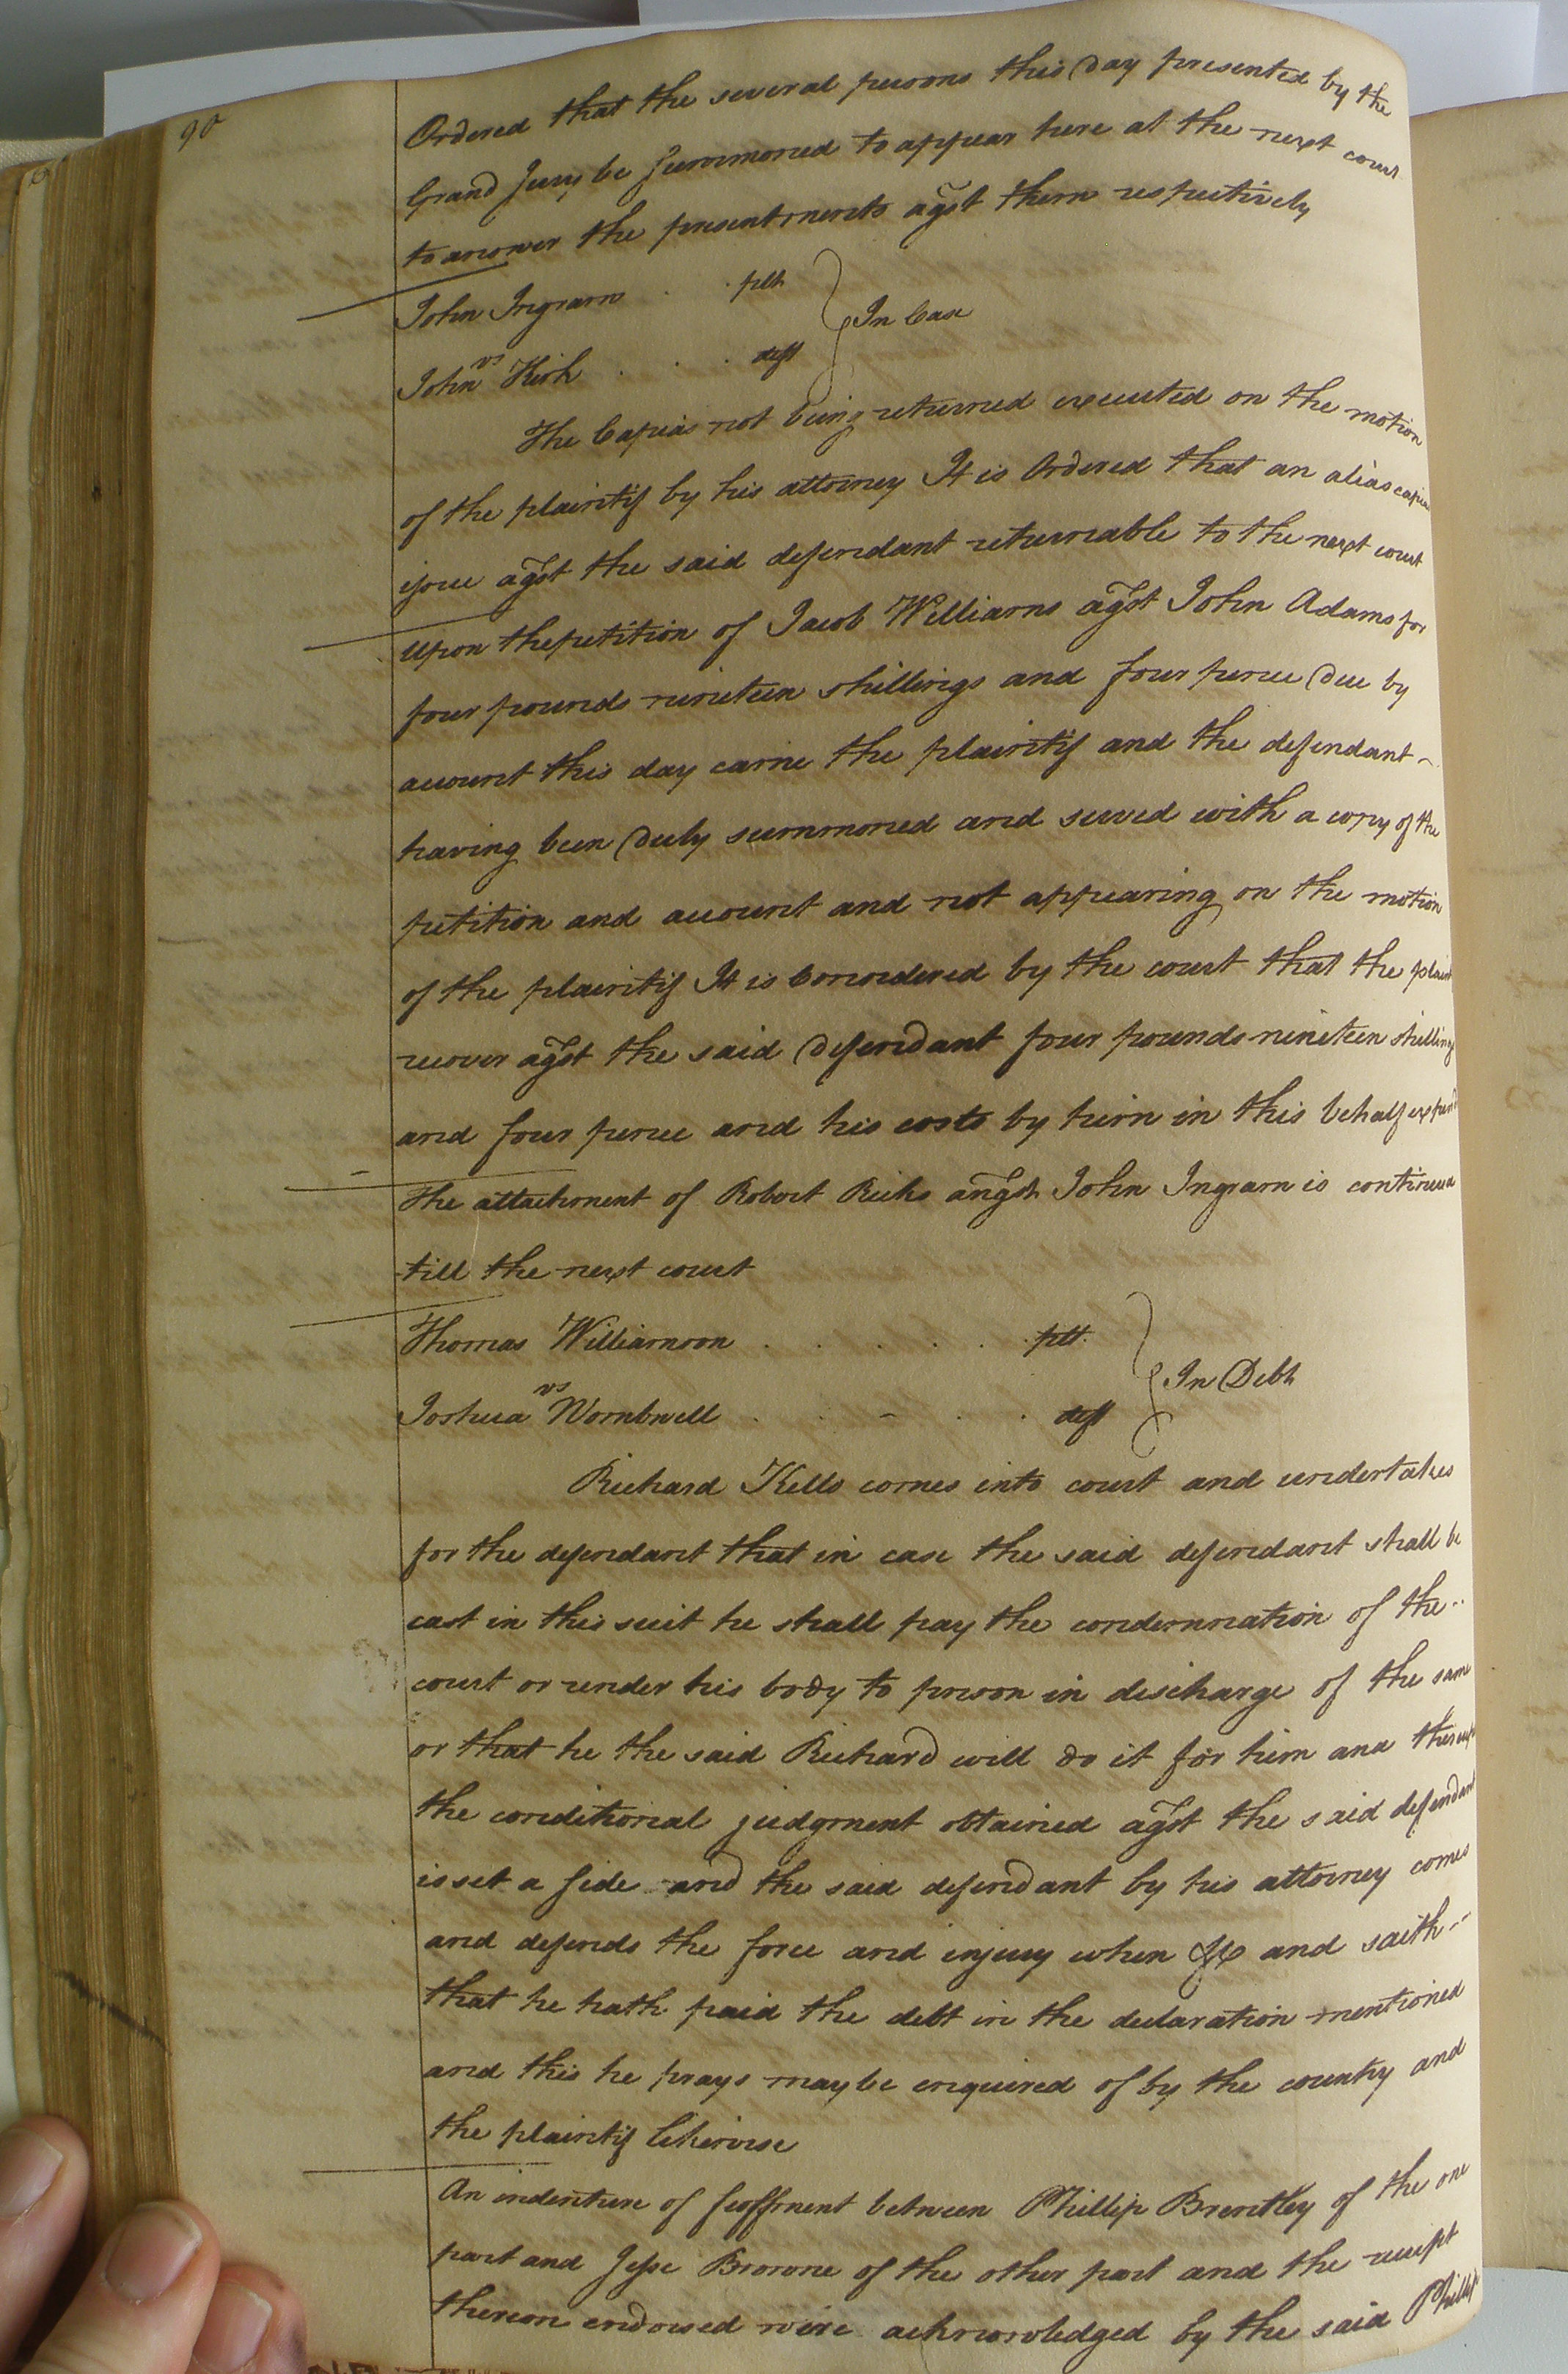 90
Ordered that the several persons this day presented by the
Grand Jury be summoned to appear here at the next court
to answer the presentments agst them respectively
John Ingram . . plt
vs } In Case
John Kirk . . . deft
The Capias not being returned executed on the motion
of the plaintif by his attorney It is Ordered that an alias capias
issue agst the said defendant returnable to the next court
Upon the petition of Jacob Williams agst John Adams for
four pounds nineteen shillings and four pence due by
account this day came the plaintif and the defendant
having been duly summoned and served with a copy of the
petition and account and not appearing on the motion
of the plaintif It is Considered by the court that the plaint
recover agst the said defendant four pounds nineteen shillings
and four pence and his costs by him in this behalf expend
The attachment of Robert Ricks angst John Ingram is continued
till the next court
Thomas Williamson . . . . . plt.
vs } In Debt
Joshua Wombwell . . - . . deft
Richard Kello comes into court and undertakes
for the defendant that in case the said defendant shall be
cast in this suit he shall pay the condemnation of the
court or render his body to prison in discharge of the same
or that he the said Richard will do it for him and thereup
the conditional judgment obtained agst the said defendant
is set a side and the said defendant by his attorney comes
and defends the force and injury when &c and saith
that he hath paid the debt in the declaration mentioned
and this he prays may be enquired of by the country and
the plaintif likewise
An indenture of feoffment between Phillip Brentley of the one
part and Jesse Browne of the other part and the receipt
thereon endorsed were acknowledged by the said Phillip